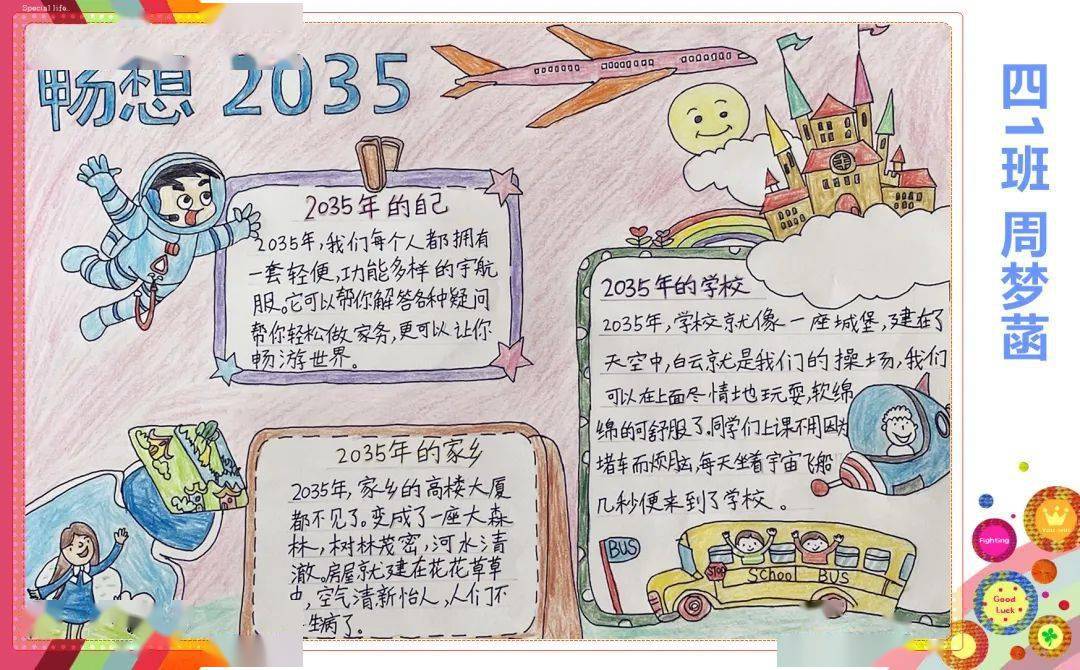 Special life.
畅想 2035
2035年的自己
2035年,我们每个人都拥有
一套轻便,功能多样的宇航
服。它可以帮你解答各种疑问
帮你轻松做家务,更可以让你
畅游世界。
2035年的学校
2035年,学校就像一座城堡,建在了
天空中,白云就是我们的操场,我们
可以在上面尽情地玩耍,软绵
绵的可舒服了。同学们上课不用因为
堵车而烦脑,每天坐着宇宙飞船
几秒便来到了学校。
2035年的家乡
2035年,家乡的高楼大厦
都不见了。变成了一座大森
林,树林茂密,河水清
澈。房屋就建在花花草草
中,空气清新怡人,人们不
生病了。
BUS
STOP
SCHOOL BUS
四1班 周梦菡
Fighting
Good
Luck